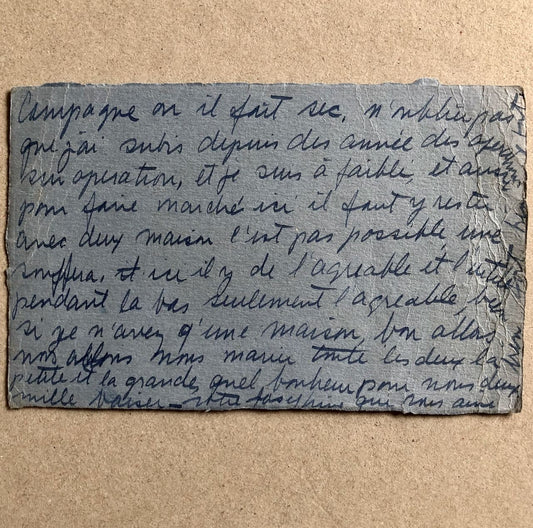 Campagne ou il fait sec, n'oublie pas
que j'ai subis depuis des année des operations
sur operation, et je suis à faiblé, et aussi
pour faire marché ici il faut y reste
avec deux maison c'est pas possible une
souffera, et ici il y de l'agreable et l'utile
pendant la bas seulement l'agreable,
si je n'avez q'une maison, bon allos
nos allons nous marier toute les deux la
petite et la grande quel bonheur pour nous deux
mille baiser votre Josephine que vous aime